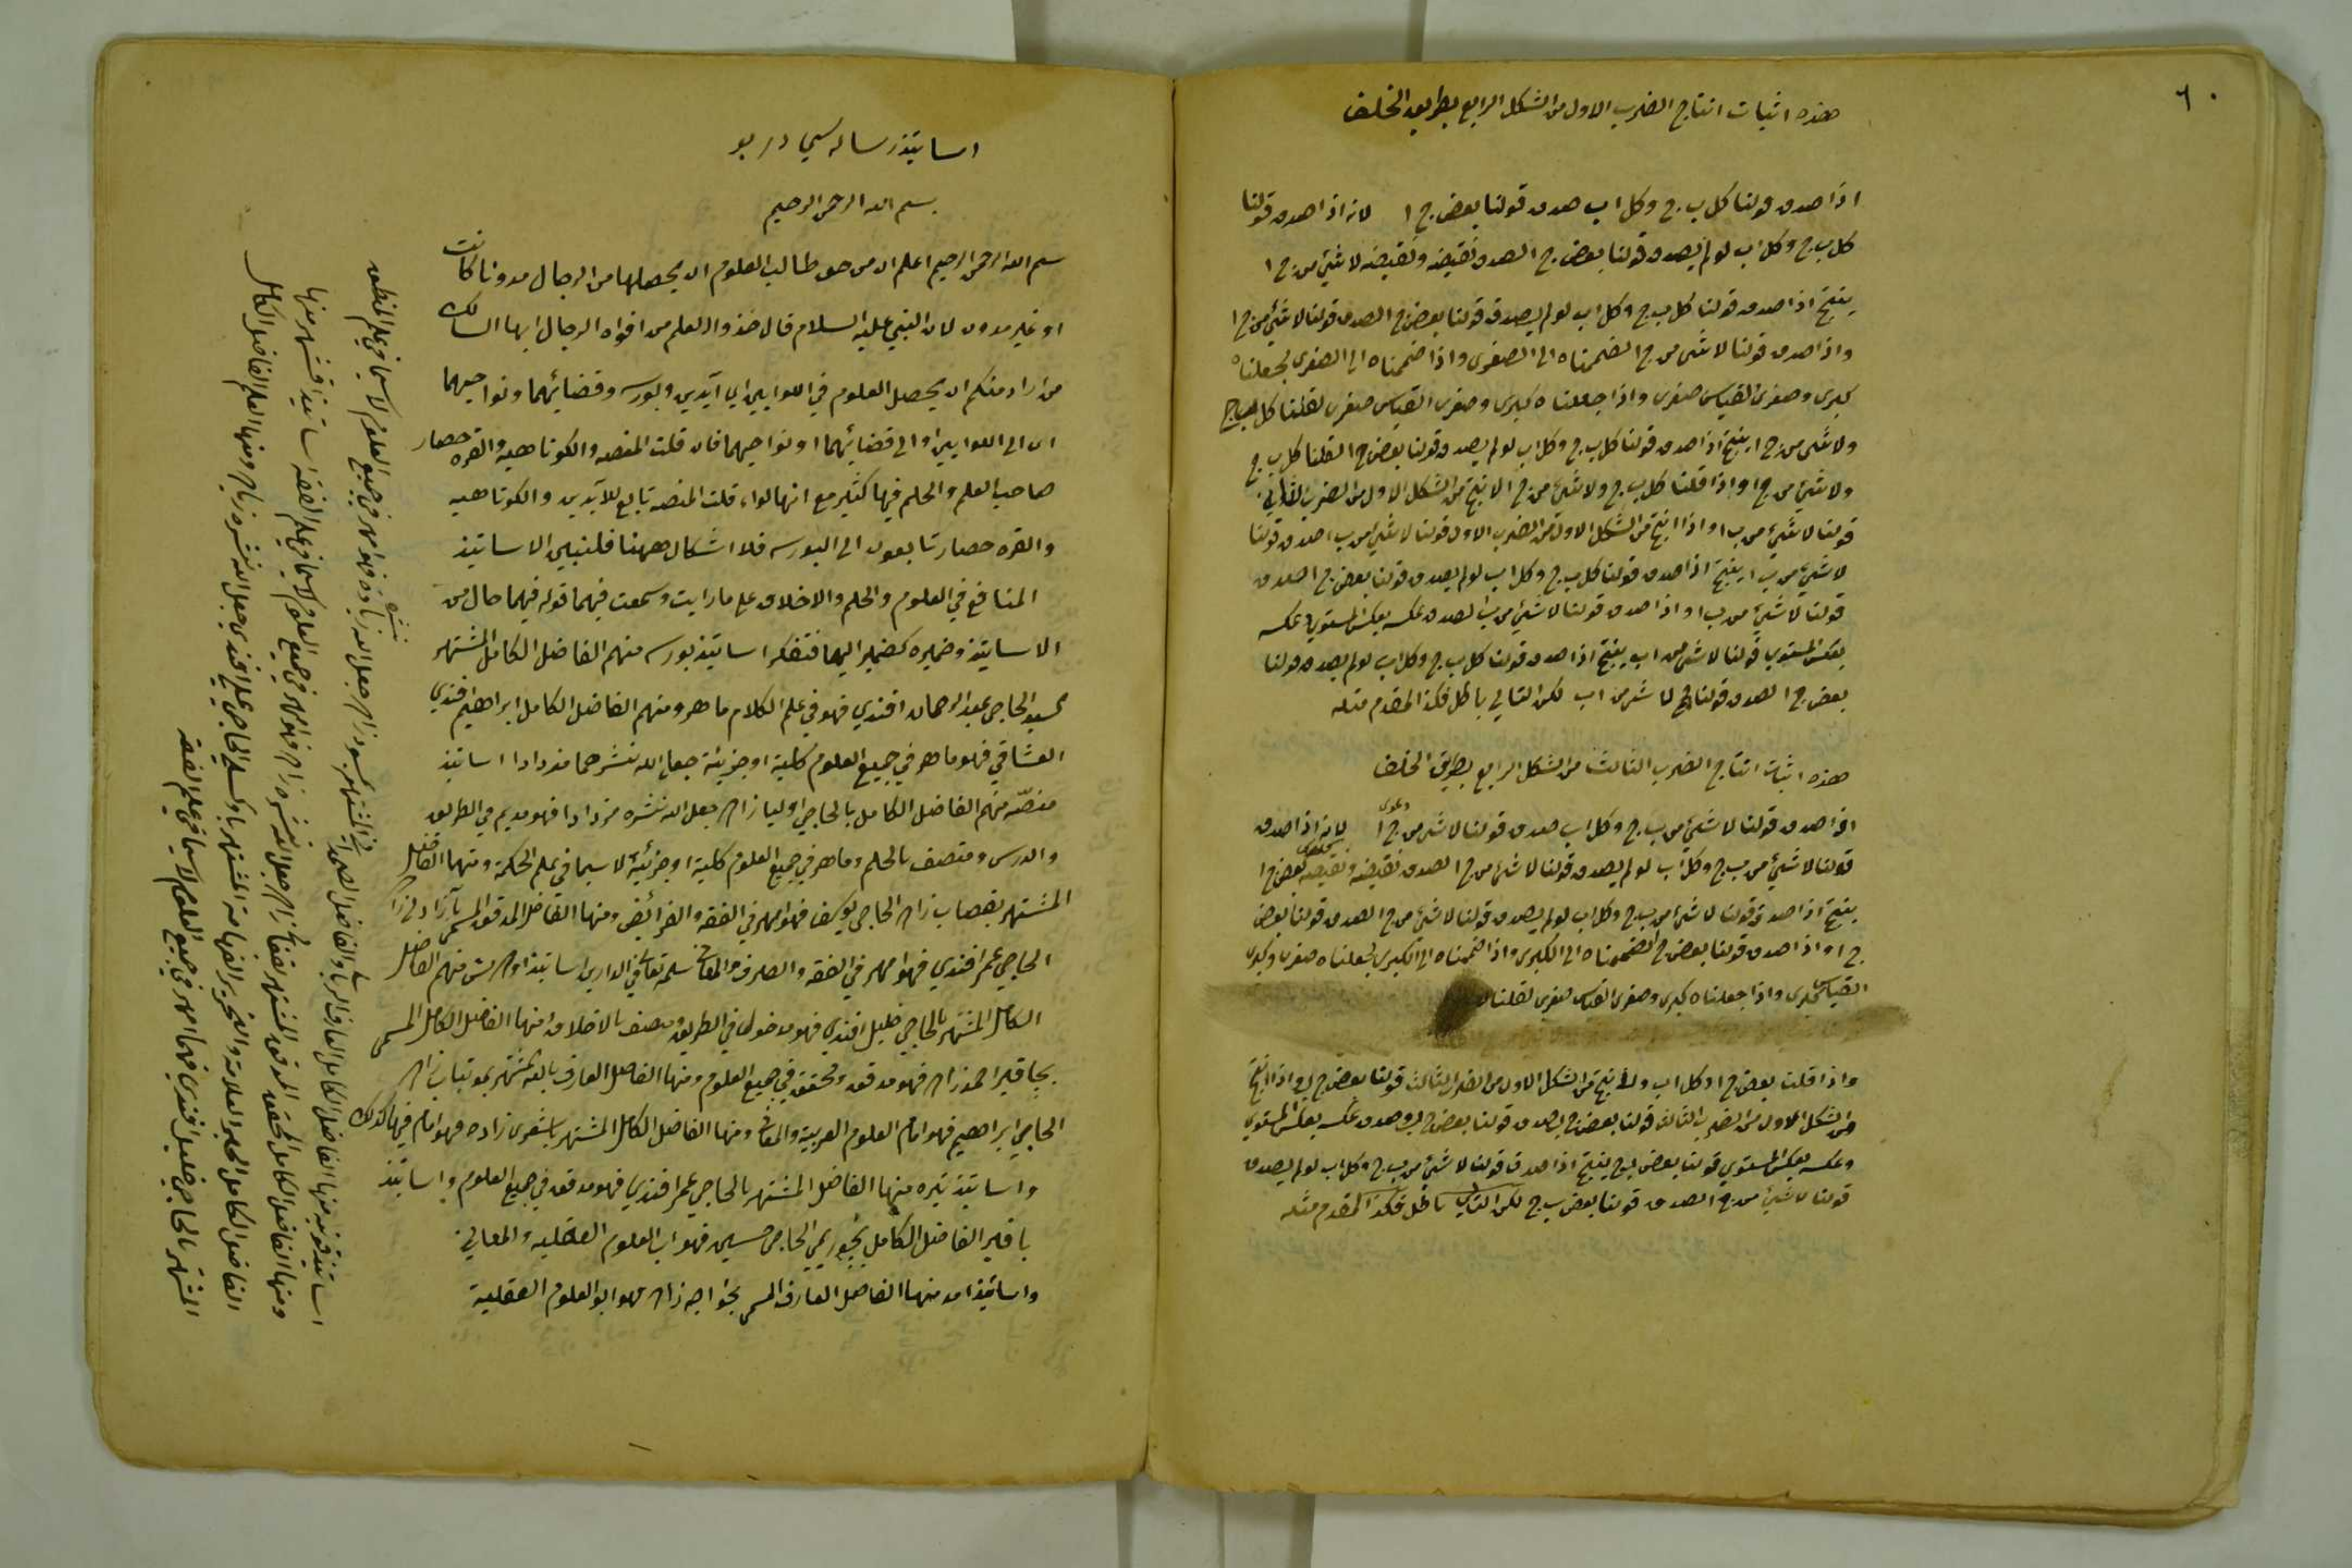 ٦٠
هذه اثبات انتاج الضرب الاول من الشكل الرابع بطريق الخلف
اذا صدق قولنا كل ب ج وكل ا ب صدق قولنا بعض ج ا لانه اذا صدق قولنا
كل ب ج وكل ا ب لو لم يصدق قولنا بعض ج ا لصدق نقيضه ونقيضه لا شئ من ج ا
ينتج اذا صدق قولنا كل ب ج وكل ا ب لو لم يصدق قولنا بعض ج ا لصدق قولنا لا شئ من ج ا
واذا صدق قولنا لا شئ من ج ا لضممناه الى الصغرى واذا ضممناه الى الصغرى لجعلناه
كبرى وصغرى القياس صغرى واذا جعلناه كبرى وصغرى القياس صغرى لقلنا كل ب ج
ولا شئ من ج ا ينتج اذا صدق قولنا كل ب ج وكل ا ب لو لم يصدق قولنا بعض ج ا لقلنا كل ب ج
ولا شئ من ج ا واذا قلنا كل ب ج ولا شئ من ج ا لانتج من الشكل الاول من الضرب الثاني
قولنا لا شئ من ب ا واذا انتج من الشكل الاول من الضرب الاول قولنا لا شئ من ب ا صدق قولنا
لا شئ من ب ا ينتج اذا صدق قولنا كل ب ج وكل ا ب لو لم يصدق قولنا بعض ج ا لصدق
قولنا لا شئ من ب ا واذا صدق قولنا لا شئ من ب ا لصدق عكسه بعكس المستوي وعكسه
بعكس المستوي قولنا لا شئ من ا ب ينتج اذا صدق قولنا كل ب ج وكل ا ب لو لم يصدق قولنا
بعض ج ا لصدق قولنا لا شئ من ا ب لكن التالي باطل فكذا المقدم مثله
هذه اثبات انتاج الضرب الثالث من الشكل الرابع بطريق الخلف
اذا صدق قولنا لا شئ من ب ج وكل ا ب صدق قولنا لا شئ من ج ا لانه اذا صدق
قولنا لا شئ من ب ج وكل ا ب لو لم يصدق قولنا لا شئ من ج ا لصدق نقيضه ونقيضه بعض ج ا
ينتج اذا صدق قولنا لا شئ من ب ج وكل ا ب لو لم يصدق قولنا لا شئ من ج ا لصدق قولنا بعض
ج ا واذا صدق قولنا بعض ج ا لضممناه الى الكبرى واذا ضممناه الى الكبرى لجعلناه صغرى وكبرى
القياس كبرى واذا جعلناه كبرى وصغرى القياس صغرى لقلنا
واذا قلنا بعض ج ا وكل ا ب لانتج من الشكل الاول من الضرب الثالث قولنا بعض ج ب واذا انتج
من الشكل الاول من الضرب الثالث قولنا بعض ج ب لصدق قولنا بعض ج ب وصدق عكسه بعكس المستوي
وعكسه بعكس المستوي قولنا بعض ب ج ينتج اذا صدق قولنا لا شئ من ب ج وكل ا ب لو لم يصدق
قولنا لا شئ من ج ا لصدق قولنا بعض ب ج لكن التالي باطل فكذا المقدم مثله
اساتيذ رساله سي در بو
بسم الله الرحمن الرحيم
بسم الله الرحمن الرحيم اعلم ان من حق طالب العلوم ان يحصلها من الرجال مدونا كانت
او غير مدون لان النبي عليه السلام قال خذوا العلم من افواه الرجال ايها السالك
من اراد منكم ان يحصل العلوم في اللوايين اي آيدين وبورسه وقضائهما ونواحيهما
اى الى اللوايين او الى قضائهما او نواحيهما فان قلت المغنصه والكوتاهيه والقره حصار
صاحب العلم والحلم فيها كثير مع انها لواء قلت المغنصه تابع للآيدين والكوتاهيه
والقره حصار تابعون الى البورسه فلا اشكال ههنا فلنبين الاساتيذ
المنافع في العلوم والحلم والاخلاق على ما رايت وسمعت فيهما قوله فيهما حال من
الاساتيذ وضميره كضمير اليها فنذكر اساتيذ بورسه منهم الفاضل الكامل المشتهر
بسيد الحاجي عبد الرحمان افندي فهو في علم الكلام ماهر ومنهم الفاضل الكامل ابراهيم افندي
العشاقي فهو ماهر في جميع العلوم كلية او جزئية جعل الله نشرهما مزدادا اساتيذ
مغنصه منهم الفاضل الكامل بالحاجي اوليا زاده جعل الله نشره مزدادا فهو مديم في الطريق
والدرس ومتصف بالحلم وماهر في جميع العلوم كلية او جزئية لا سيما في علم الحكمة ومنها الفاضل
المشتهر بقصاب زاده الحاجي يوسف فهو امهر في الفقه والفرائض ومنها الفاضل المدقق المسمى
الحاجي عمر افندي فهو امهر في الفقه والصرف والمعاني سلمه تعالى في الدارين اساتيذ منهم الفاضل
الكامل المشتهر بالحاجي خليل افندي فهو مدخول في الطريق ومتصف بالاخلاق ومنها الفاضل الكامل المسمى
فهو مدقق ومحقق في جميع العلوم ومنها الفاضل العارف بالله المشتهر
الحاجي ابراهيم فهو امام العلوم العربية والمعاني ومنها الفاضل الكامل المشتهر باشقرى زاده فهو امام فيها كذلك
واساتيذ تيره منها الفاضل المشتهر بالحاجي عمر افندي فهو مدقق في جميع العلوم واساتيذ
الفاضل الكامل الحاجي حسين فهو اب العلوم العقلية والمعاني
واساتيذ منها الفاضل العارف المسمى بخواجه زاده فهو ابو العلوم العقلية
اساتيذ منها الفاضل الكامل العارف بالله والفاضل المشتهر زاده جعل الله نشره زيادة فهو امهر في جميع العلوم لا سيما في علم المنطق
ومنها الفاضل الكامل المحقق المدقق المشتهر زاده جعل الله نشره فهو امهر في جميع العلوم لا سيما في علم الفقه اساتيذ
الفاضل الكامل العلامة والنحرير الفهامة المشتهر الحاجي علي افندي جعل الله نشره زيادة ومنها العلم الفاضل الكامل
المشتهر بالحاجي خليل افندي فهما امهر في جميع العلوم لا سيما في علم الفقه